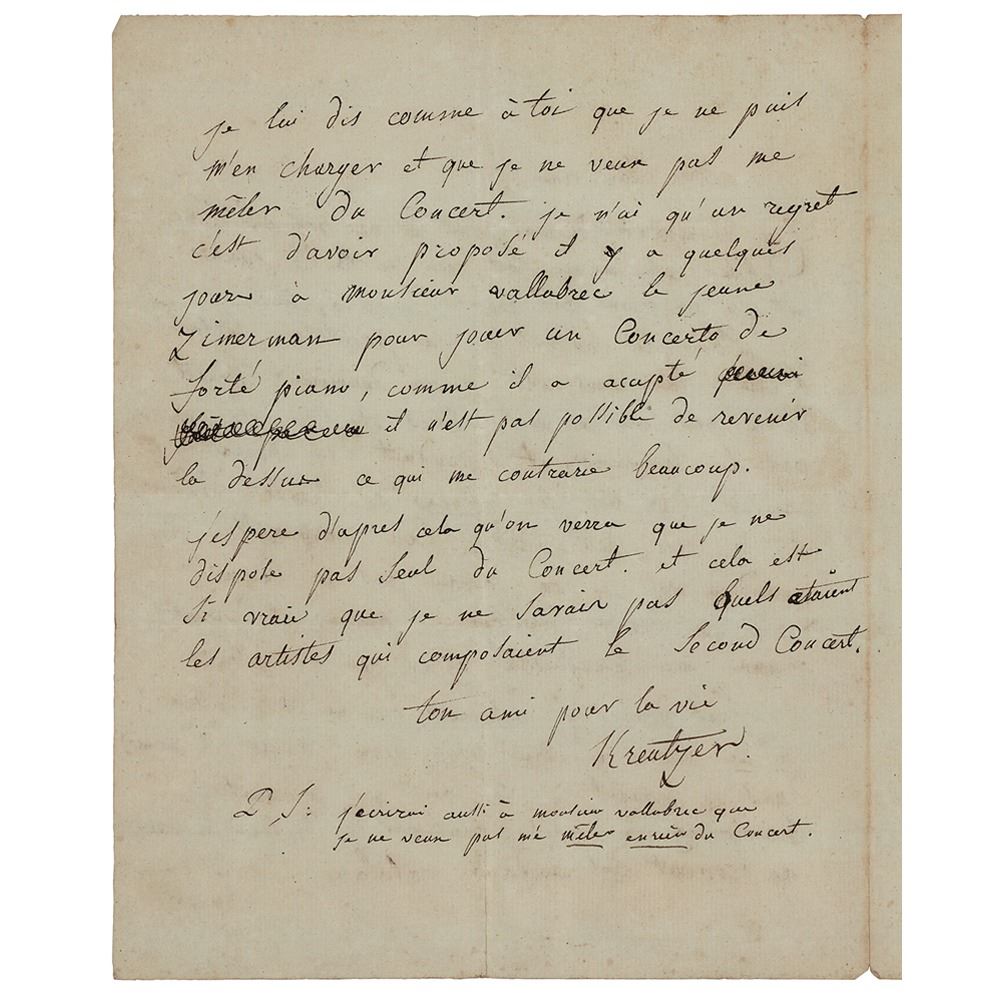 je lui dis comme à toi que je ne puis
m'en charger et que je ne veux pas me
mêler du Concert. je n'ai qu'un regret
c'est d'avoir proposé il y a quelques
jours à monsieur vallabrec le jeune
Zimerman pour jouer un Concerto de
forté piano, comme il a acapté
il n'est pas possible de revenir
la dessus ce qui me contrarie beaucoup.
j'espere d'apres cela qu'on verra que je ne
dispose pas seul du Concert. et cela est
si vrai que je ne savais pas quels etaient
les artistes qui composaient le second Concert.
ton ami pour la vie
Kreutzer.
P S: j'ecrirai aussi à monsieur vallabrec que
je ne veux pas me mêler en rien du Concert.